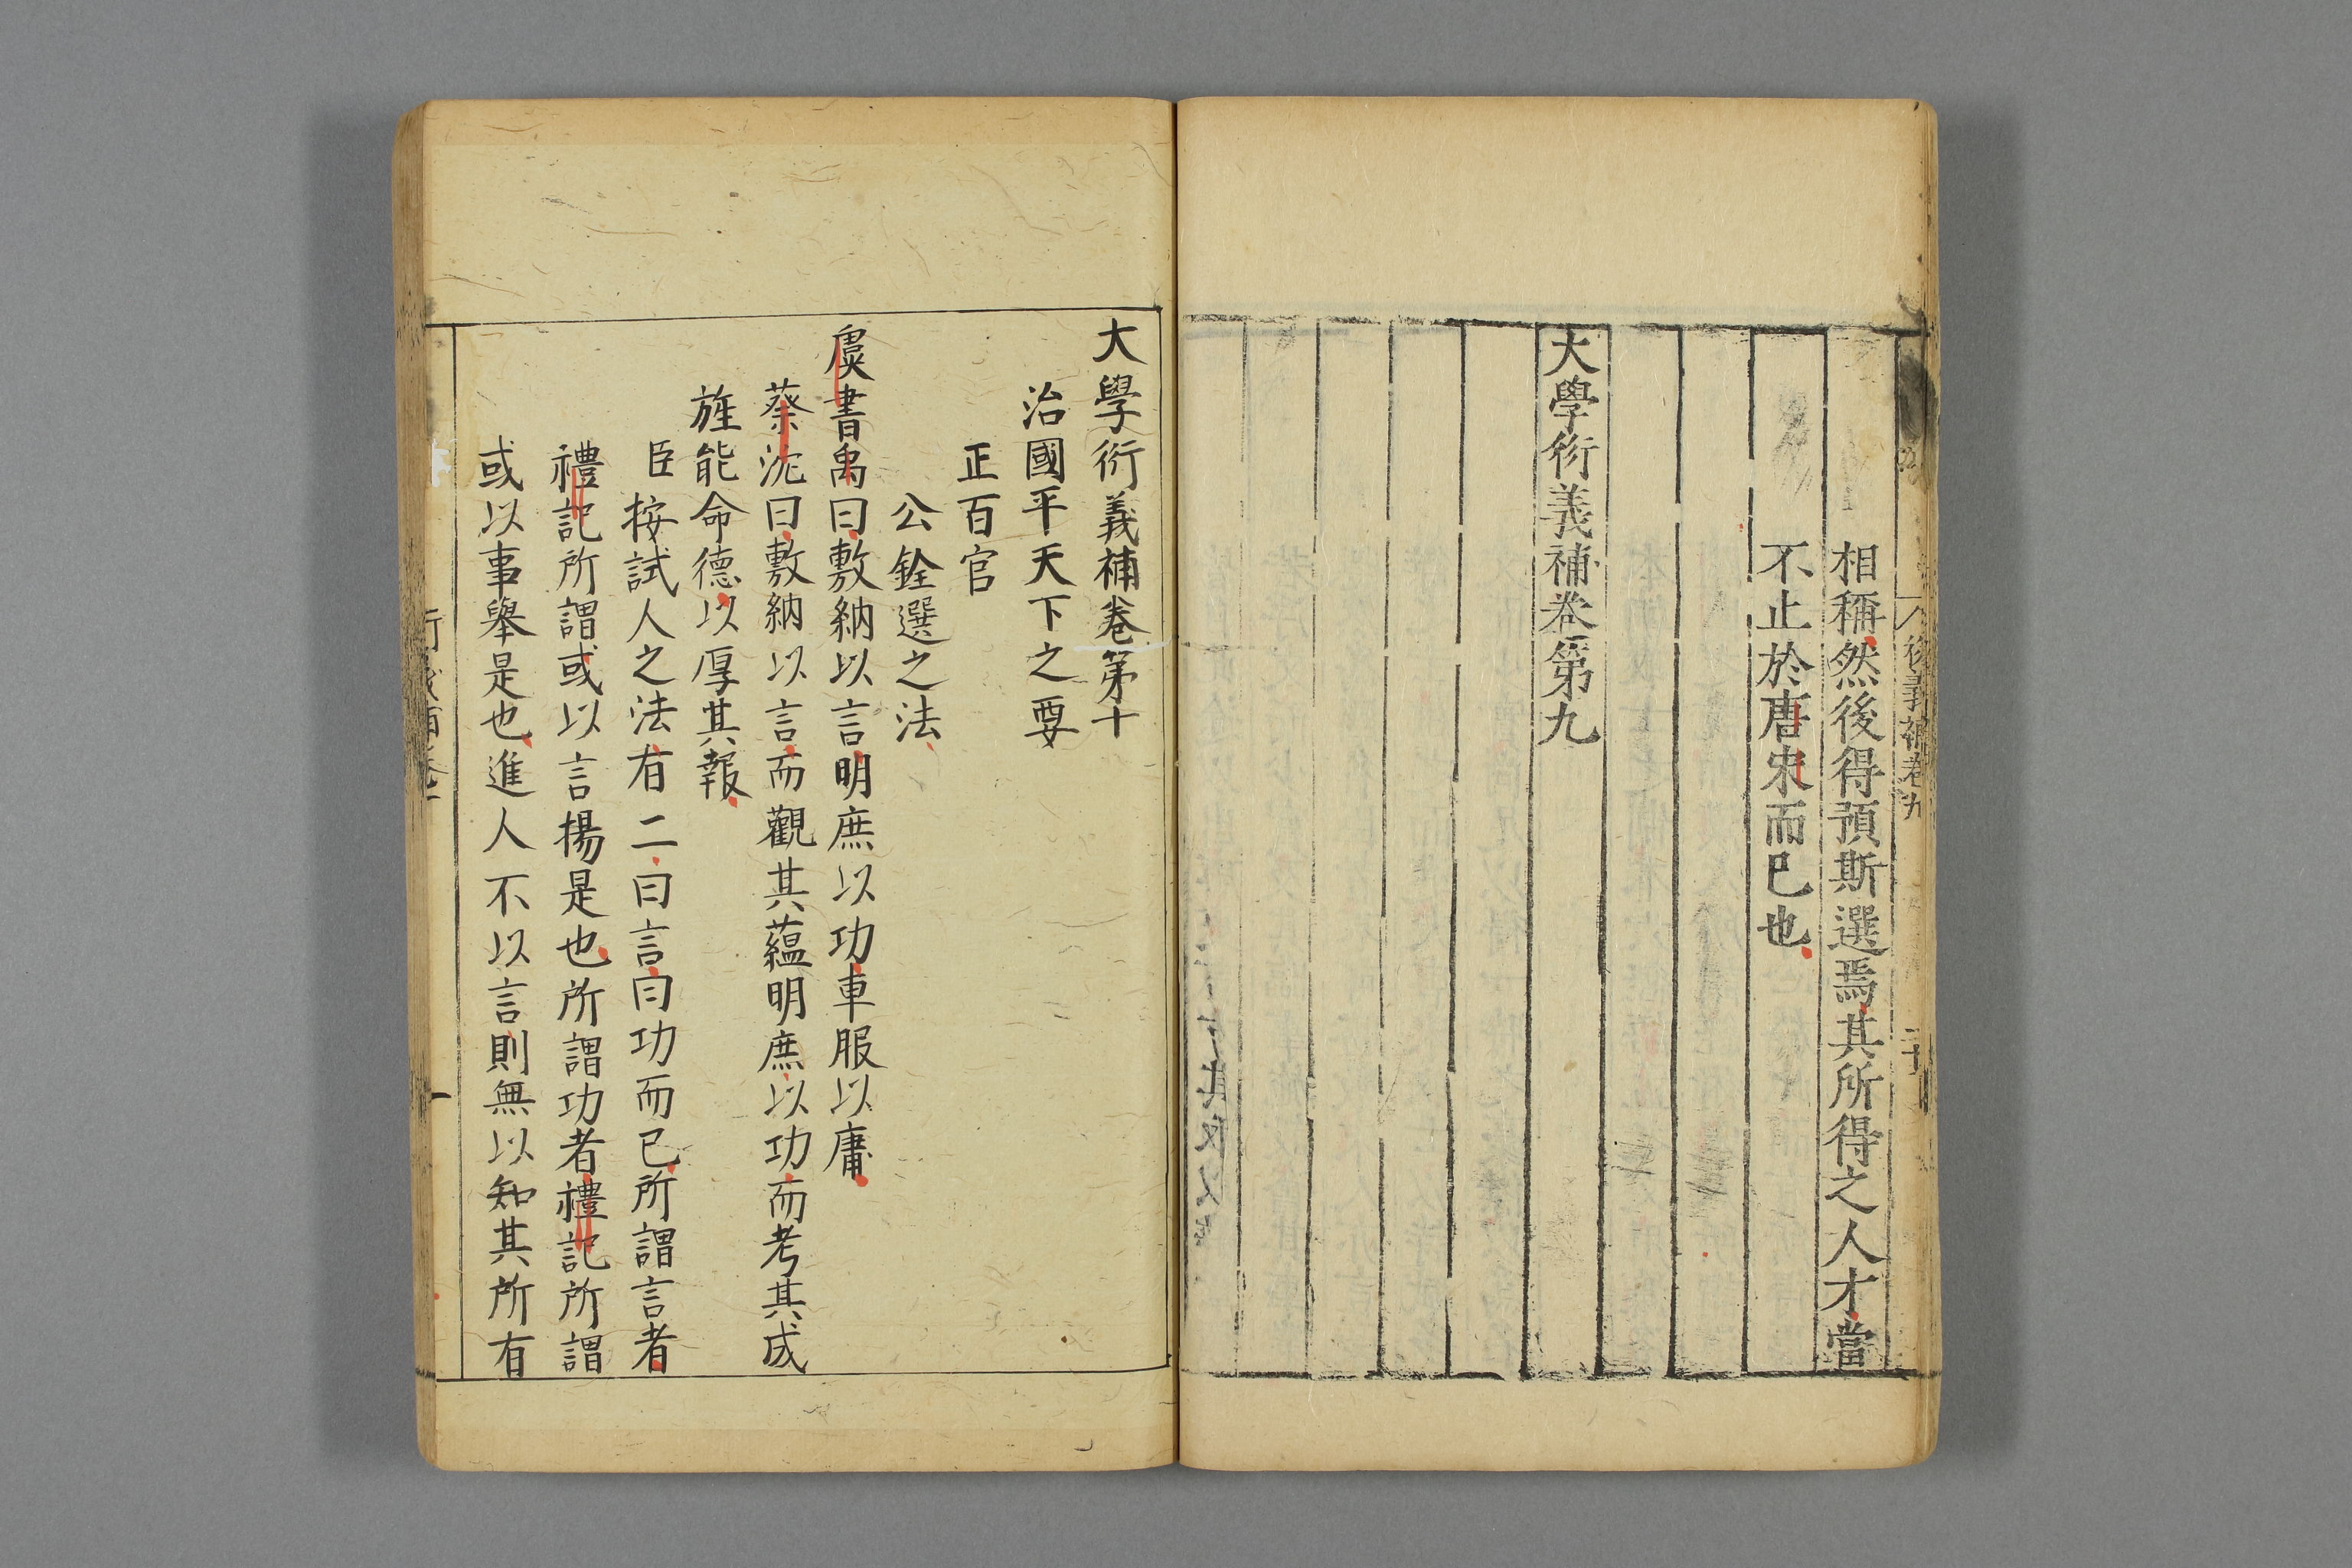 衍義補卷九
二十
相稱然後得預斯選焉其所得之人才當
不止於唐宋而已也
大學衍義補卷第九
大學衍義補卷第十
治國平天下之要
正百官
公銓選之法
虞書禹曰敷納以言明庶以功車服以庸
蔡沈曰敷納以言而觀其蘊明庶以功而考其成
旌能命德以厚其報
臣按試人之法有二曰言曰功而已所謂言者
禮記所謂或以言揚是也所謂功者禮記所謂
或以事舉是也進人不以言則無以知其所有